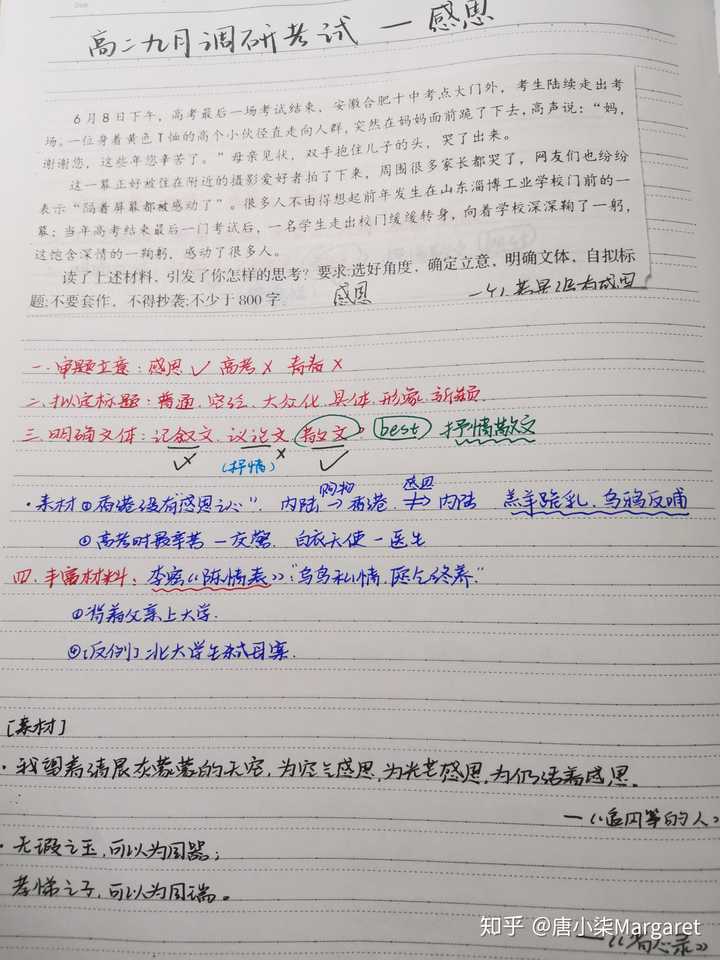 高二九月调研考试 — 感恩
6月8日下午，高考最后一场考试结束、安徽合肥十中考点大门外，考生陆续走出考
场。一位身着黄色T恤的高个小伙径直走向人群，突然在妈妈面前跪了下去，高声说：“妈，
谢谢您，这些年您辛苦了。”母亲见状，双手抱住儿子的头，哭了出来。
这一幕正好被住在附近的摄影爱好者拍了下来，周围很多家长都哭了，网友们也纷纷
表示“隔着屏幕都被感动了”。很多人不由得想起前年发生在山东淄博工业学校门前的一
幕：当年高考结束最后一门考试后，一名学生走出校门缓缓转身，向着学校深深鞠了一躬，
这饱含深情的一鞠躬，感动了很多人。
读了上述材料，引发了你怎样的思考？要求:选好角度，确定立意，明确文体，自拟标
题;不要套作，不得抄袭;不少于800字
感恩 一个人若果没有感恩
一.审题立意：感恩✓ 高考× 青春×
二.拟定标题：普通.空经.大众化.具体.形象.新颖
三.明确文体：记叙文.议论文.散文. best 抒情散文
✓ (抒情) × ✓
购物 感恩
·素材①香港没有感恩之心". 内陆→香港. ⇸内陆 羔羊跪乳.乌鸦反哺
②高考时最辛苦—交警. 白衣天使—医生
四.丰富材料：李密《陈情表》:"乌鸟私情.愿乞终养."
①背着父亲上大学.
②(反例)北大学生弑母案.
[素材]
·我望着清晨灰蒙蒙的天空,为空气感恩,为光芒感恩,为仍活着感恩.
—《追风筝的人》
·无瑕之玉,可以为国器;
孝悌之子,可以为国瑞。
—《省心录》
知乎 @唐小柒Margaret